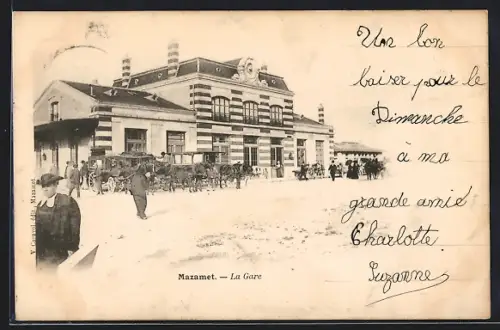 Un bon
baiser pour le
Dimanche
à ma
grande amie
Charlotte
Suzanne
Mazamet. — La Gare